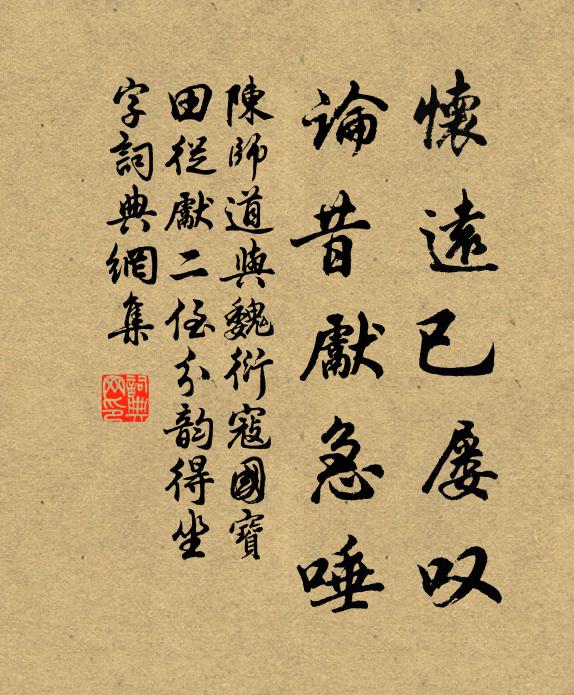 懷遠已屡叹
論昔獻急唾
陳師道與魏衍寇國寶
田從獻二侄分韵得坐
字詞典網集
詞典
网印